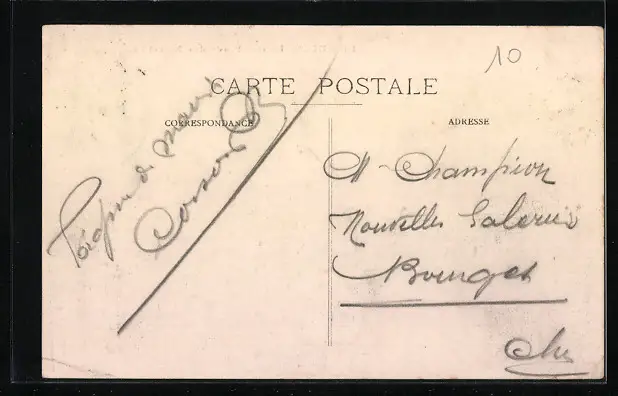 10
CARTE POSTALE
CORRESPONDANCE
ADRESSE
Poignée de main
M. Champion
Nouvelles Galeries
Bourges
Cher